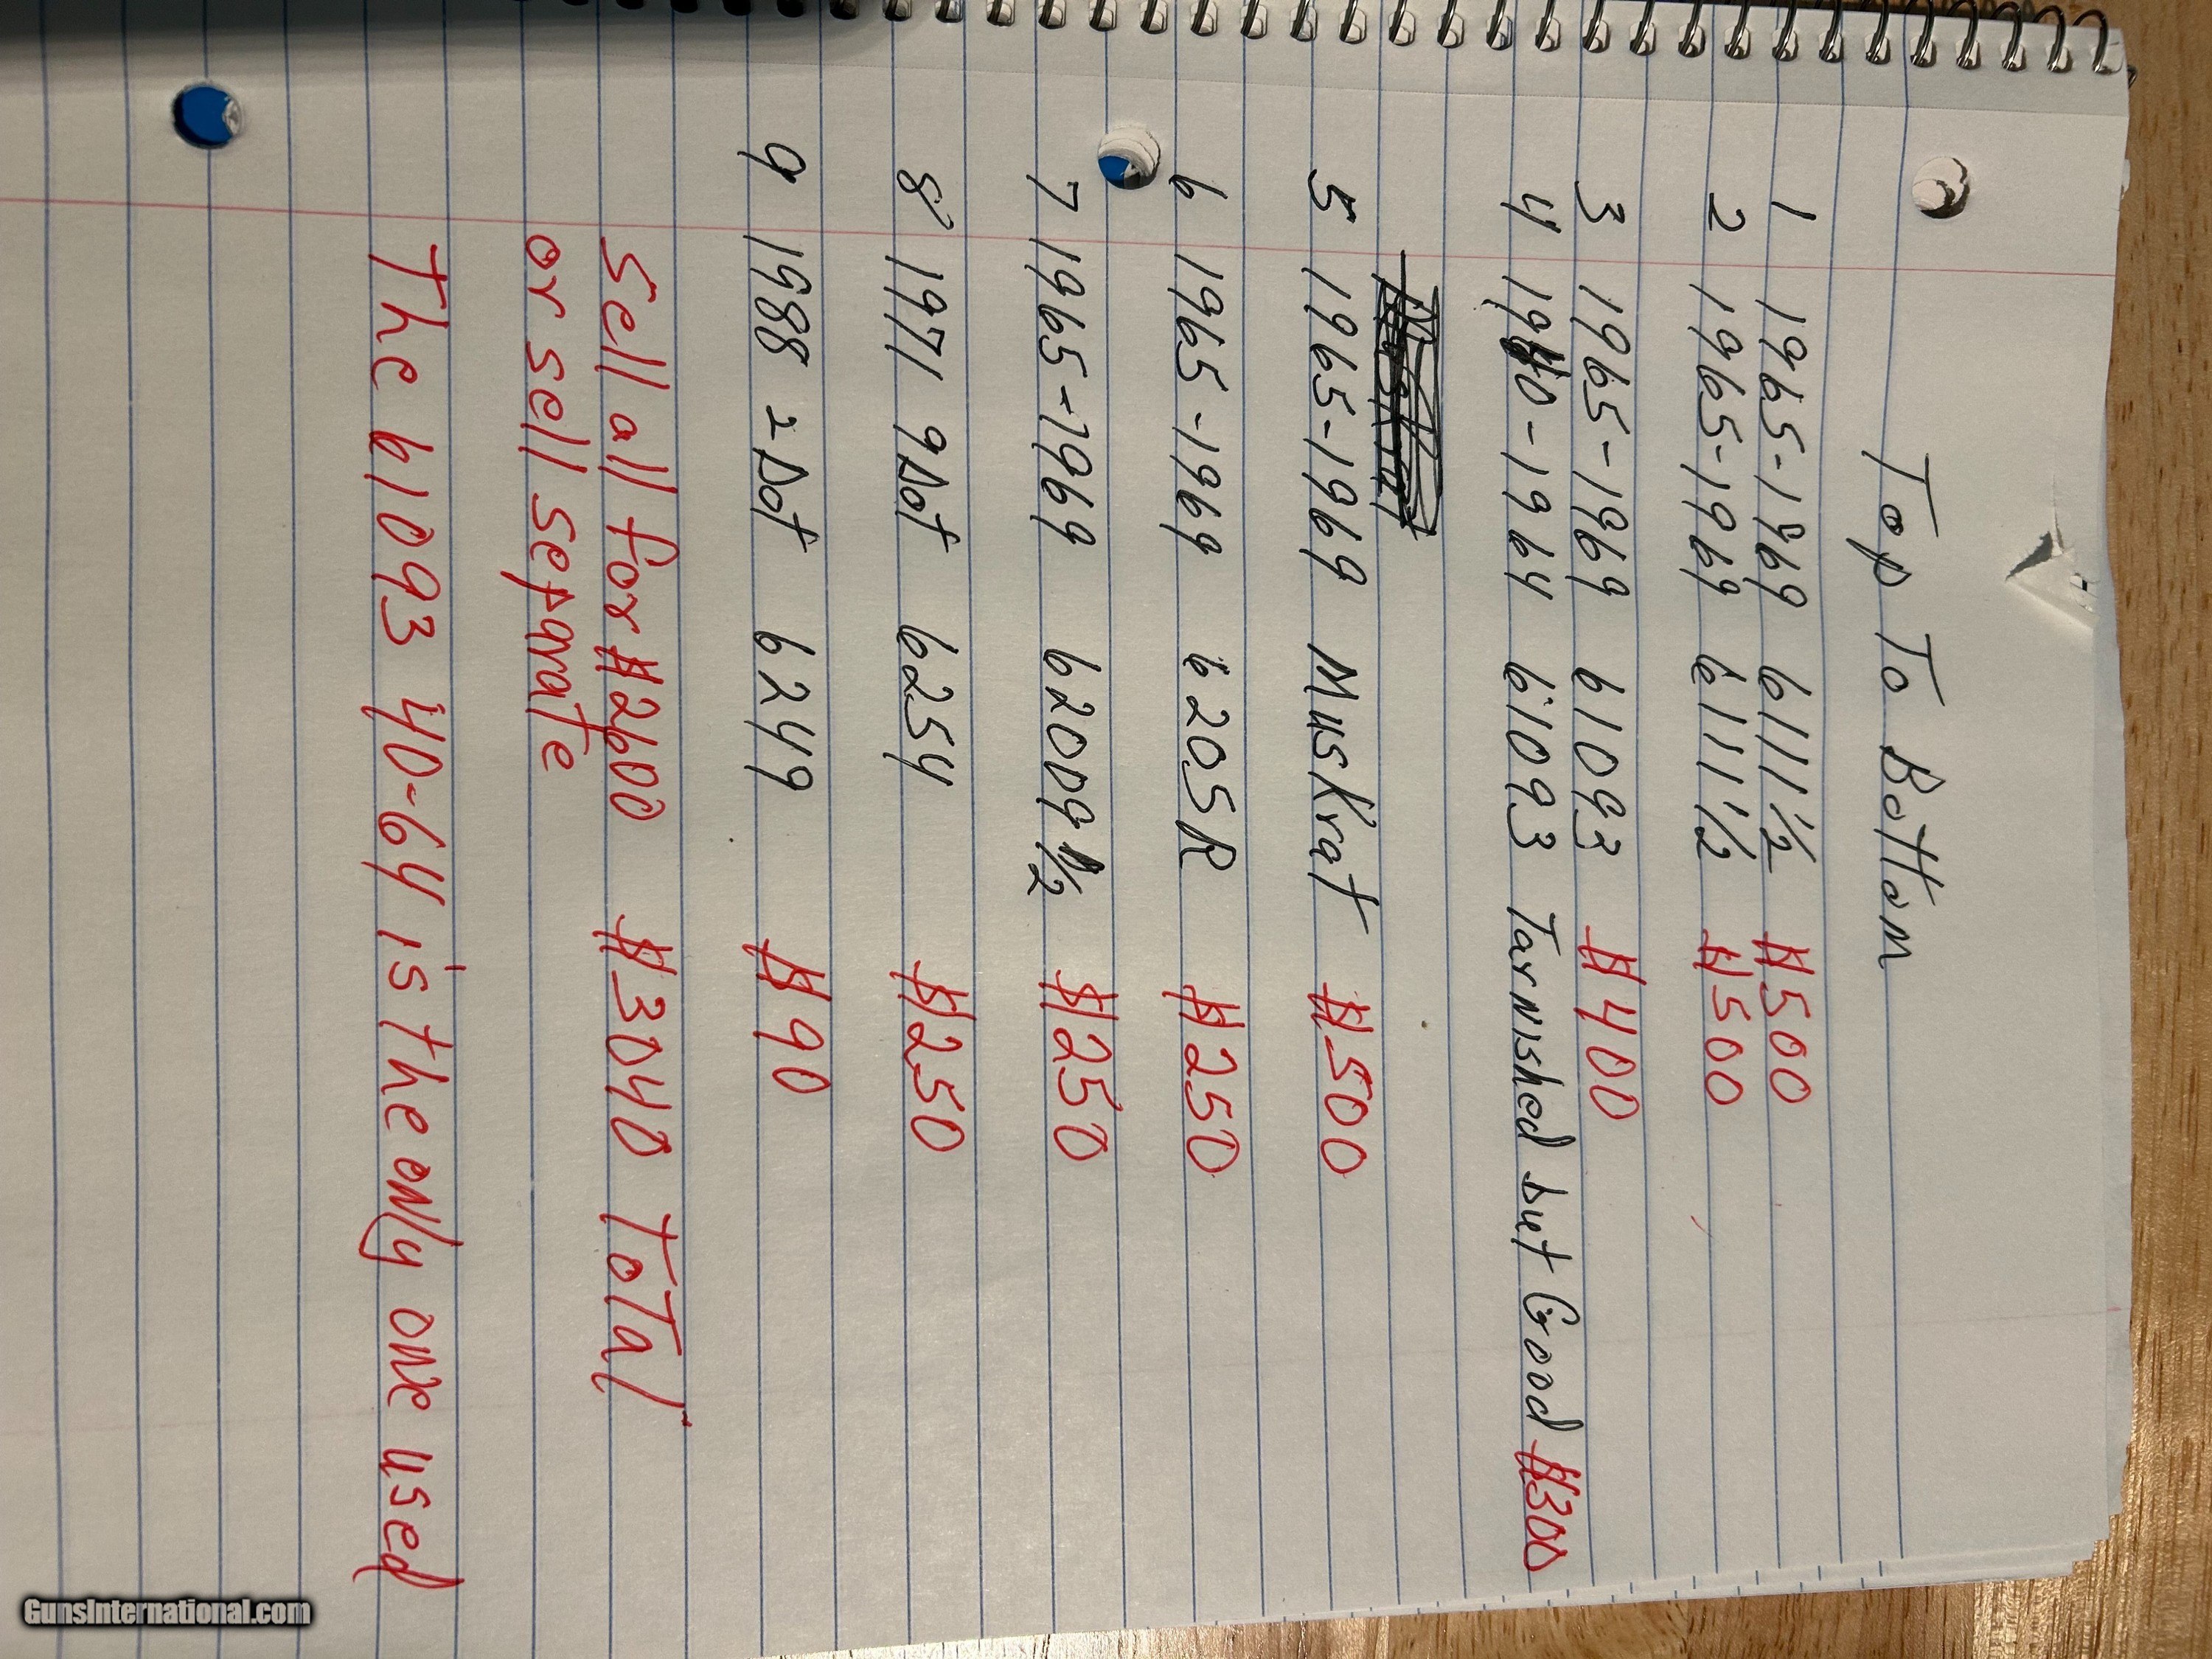 Top To Bottom
1 1965-1969 6111 1/2 $500
2 1965-1969 6111 1/2 $500
3 1965-1969 61093 $400
4 1940-1964 61093 Tarnished but Good $300
5 1965-1969 Muskrat $500
6 1965-1969 6205R $250
7 1965-1969 62009 1/2 $250
8 1971 9Dot 6254 $250
9 1988 2-Dot 6249 $90
Sell all for $2600 $3040 ToTal
or sell separate
The 61093 40-64 is the only one used
GunsInternational.com